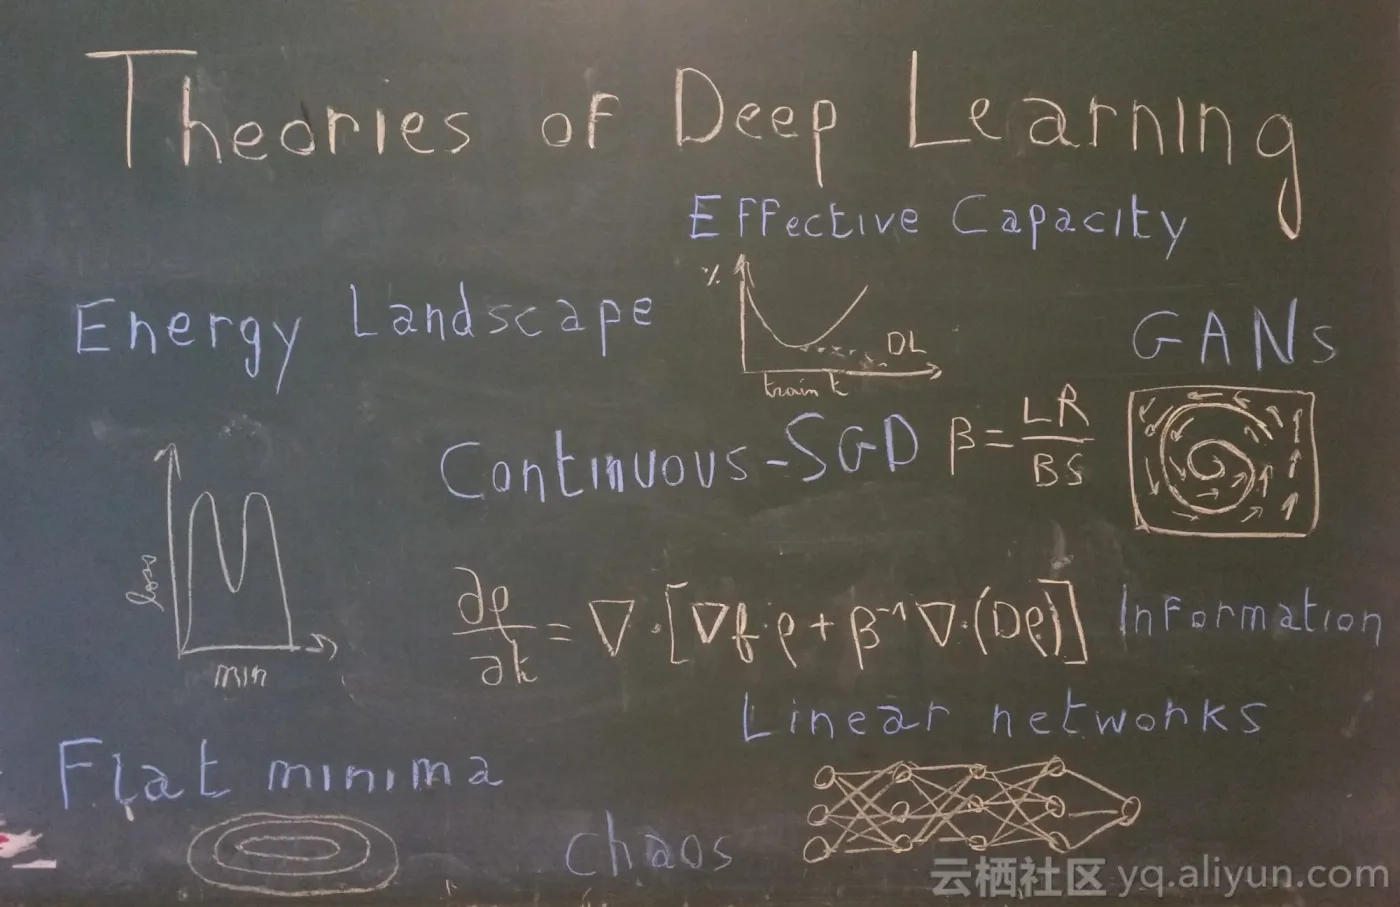 Theories of Deep Learning
Effective Capacity
Energy Landscape
%
DL
train t
GANs
Continuous-SGD β = LR/BS
loss
min
∂ρ/∂t = ∇·[∇f·ρ + β⁻¹∇·(Dρ)]
Information
Linear networks
Flat minima
chaos
云栖社区 yq.aliyun.com